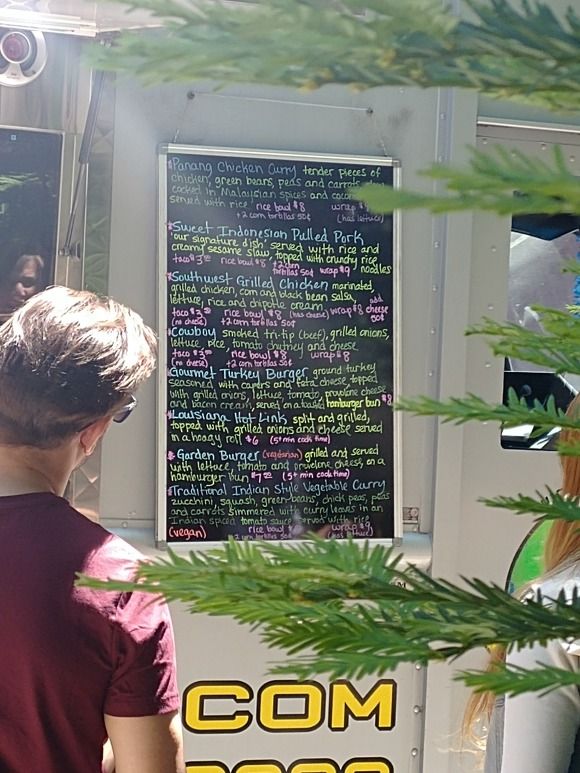 Panang Chicken Curry tender pieces of
chicken, green beans, peas and carrots
cooked in Malaysian spices and
served with rice rice bowl $8 wrap
+2 corn tortillas 50¢ (has lettuce)
Sweet Indonesian Pulled Pork
'our signature dish' served with rice and
creamy sesame slaw, topped with crunchy rice
noodles
taco $3 rice bowl $8 +2 corn tortillas 50¢ wrap $9
Southwest Grilled Chicken marinated,
grilled chicken, corn and black bean salsa,
lettuce, rice and chipotle cream
taco $3 rice bowl $8 (has cheese) wrap $8 add cheese 50¢
(no cheese) +2 corn tortillas 50¢
Cowboy smoked tri-tip (beef), grilled onions,
lettuce, rice, tomato chutney and cheese
taco $3 rice bowl $8 wrap $8
(no cheese) +2 corn tortillas 50¢
Gourmet Turkey Burger ground turkey
seasoned with capers and feta cheese, topped
with grilled onions, lettuce, tomato, provolone cheese
and bacon cream, served on a toasted hamburger bun $8
Louisiana Hot Link split and grilled,
topped with grilled onions and cheese served
on a hoagy roll $6 (5+ min cook time)
Garden Burger (vegetarian) grilled and served
with lettuce, tomato and provelone cheese, on a
hamburger bun $7 (5+ min cook time)
Traditional Indian Style Vegetable Curry
zucchini, squash, green beans, chick peas, peas
and carrots simmered with curry leaves in an
Indian spiced tomato sauce served with rice
(vegan) rice bowl wrap $9
2 corn tortillas 50¢ (has lettuce)
COM